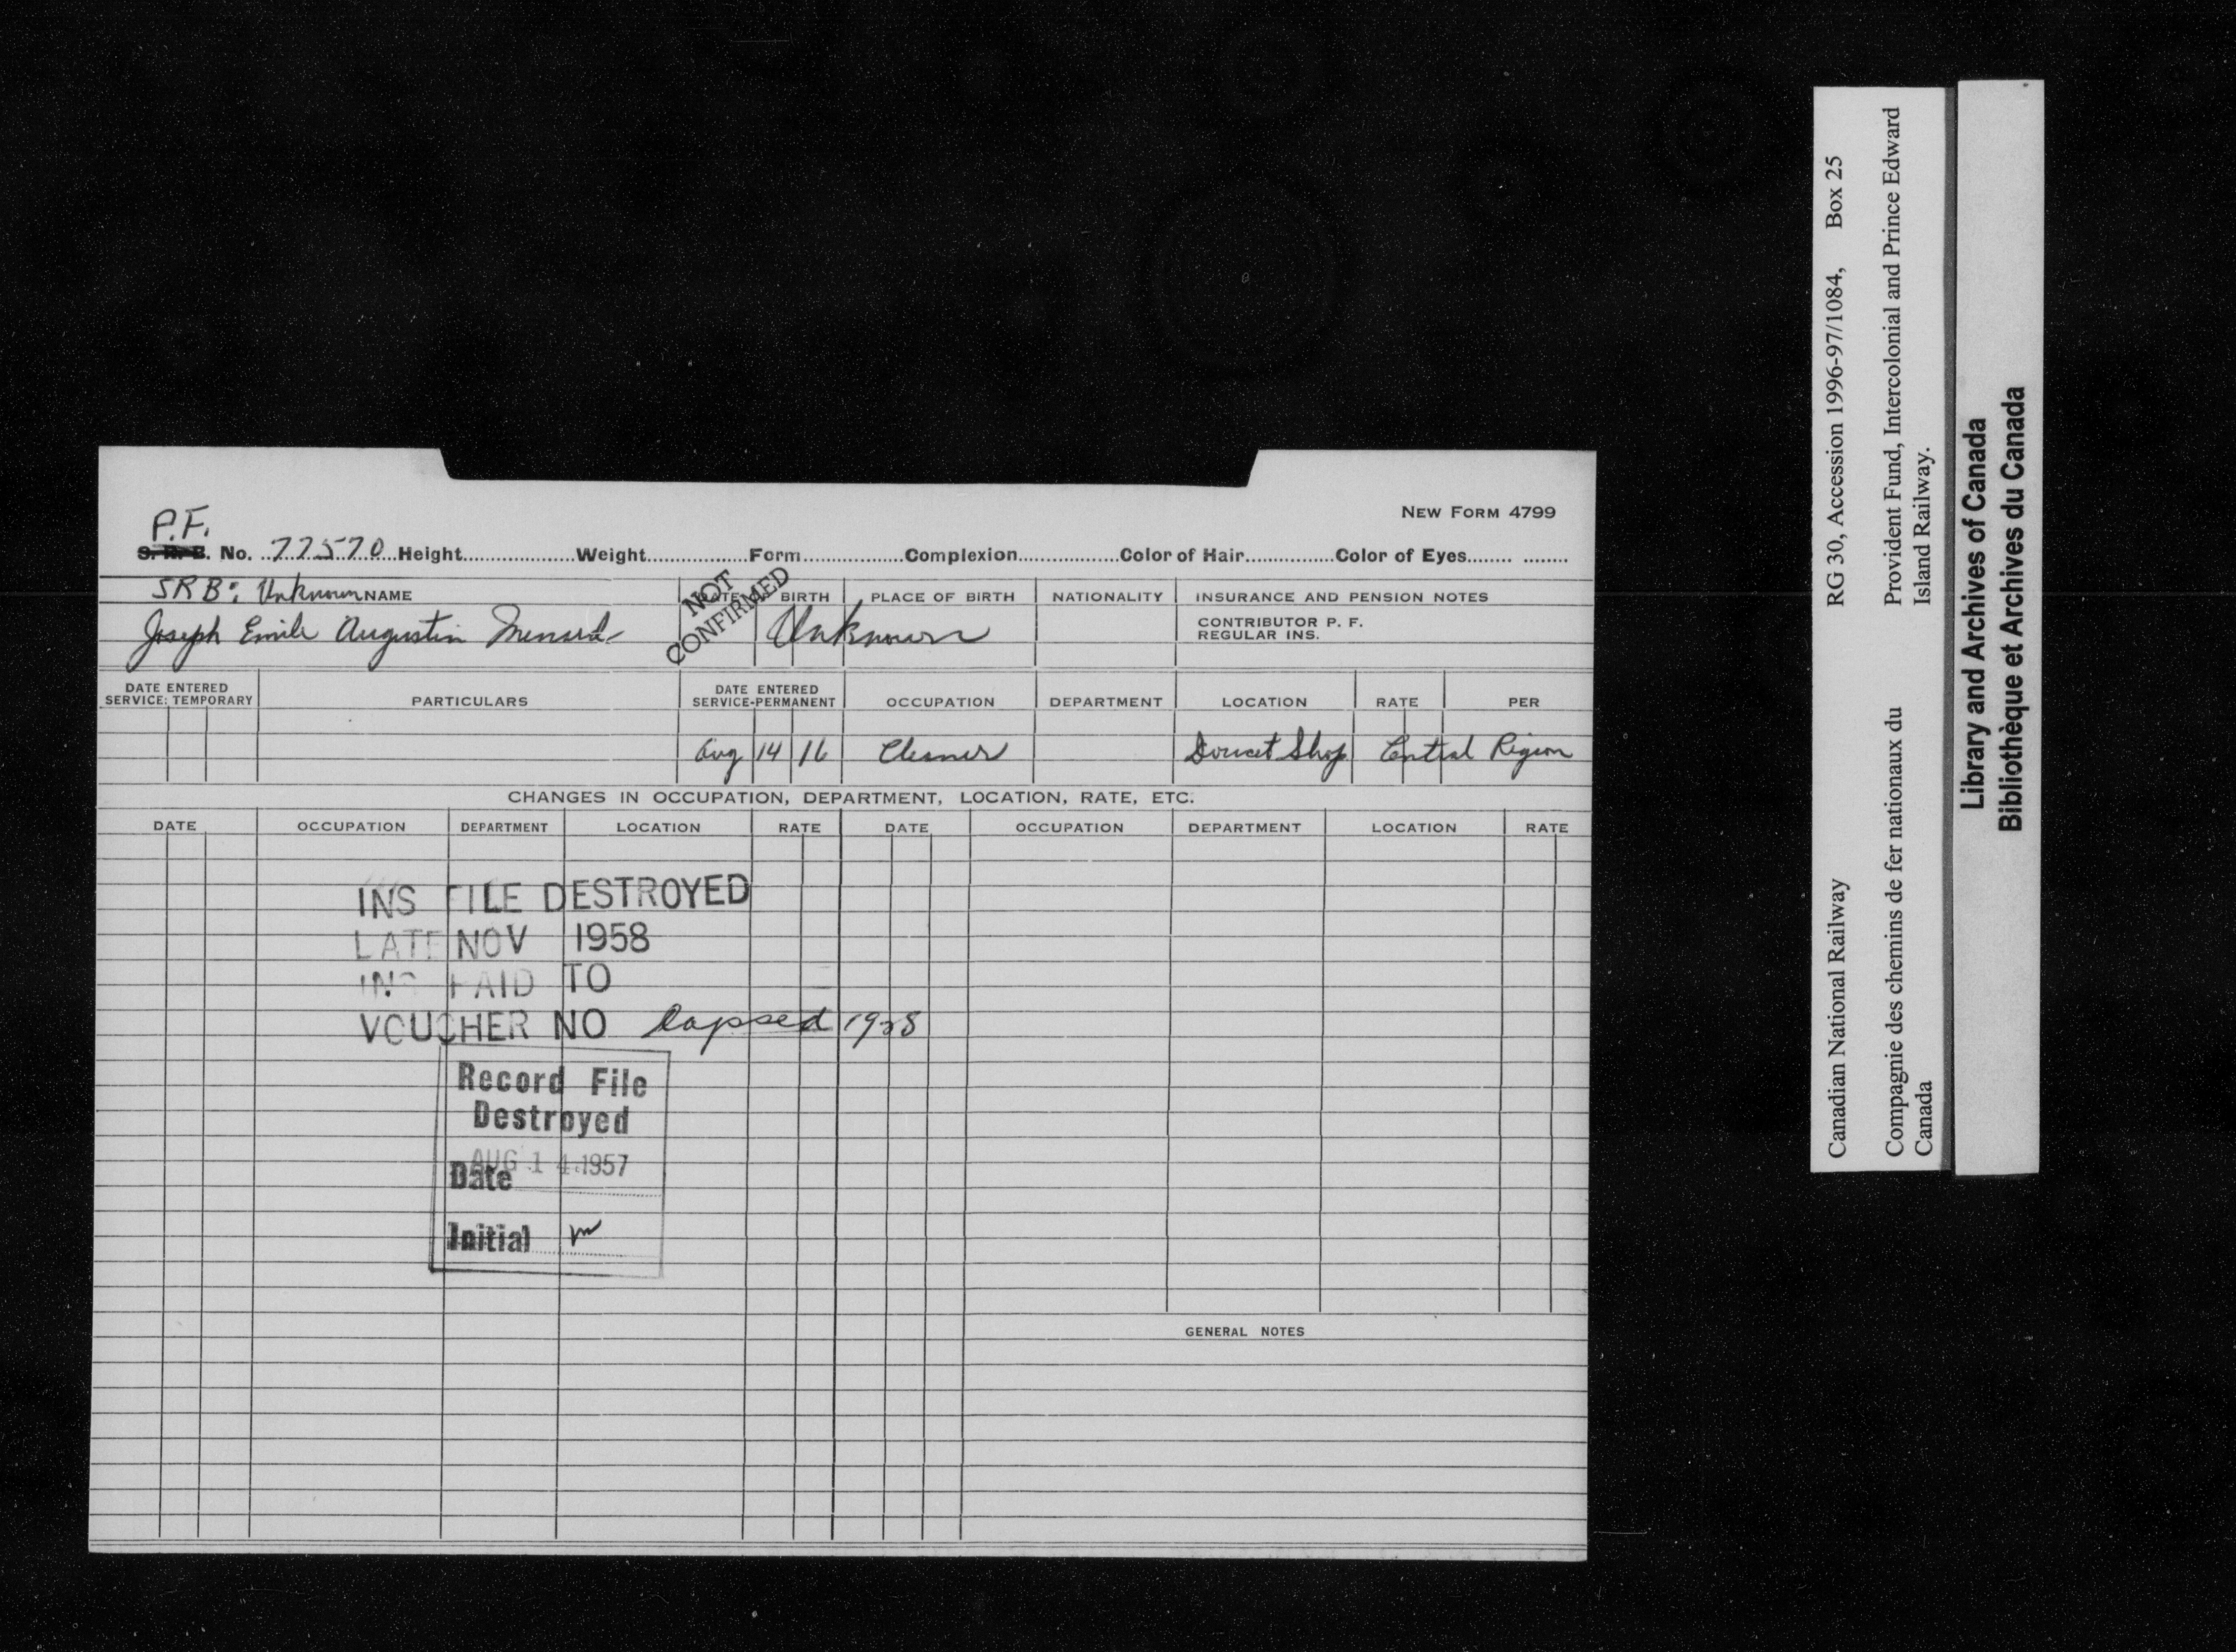 NEW FORM 4799
P.F.
S. R. B. No. 77570 Height Weight Form Complexion Color of Hair Color of Eyes
SRB: Unknown NAME DATE OF BIRTH PLACE OF BIRTH NATIONALITY INSURANCE AND PENSION NOTES
NOT
CONFIRMED
Joseph Emile Augustin Menard Unknown
CONTRIBUTOR P. F.
REGULAR INS.
DATE ENTERED SERVICE: TEMPORARY PARTICULARS DATE ENTERED SERVICE-PERMANENT OCCUPATION DEPARTMENT LOCATION RATE PER
Aug 14 16 Cleaner Doucet Shop Central Region
CHANGES IN OCCUPATION, DEPARTMENT, LOCATION, RATE, ETC.
DATE OCCUPATION DEPARTMENT LOCATION RATE DATE OCCUPATION DEPARTMENT LOCATION RATE
INS FILE DESTROYED
LATE NOV 1958
INS PAID TO
VOUCHER NO lapsed 1928
Record File
Destroyed
AUG 14 1957
Date
Initial
GENERAL NOTES
Canadian National Railway RG 30, Accession 1996-97/1084, Box 25
Compagnie des chemins de fer nationaux du Provident Fund, Intercolonial and Prince Edward
Canada Island Railway.
Library and Archives of Canada
Bibliothèque et Archives du Canada